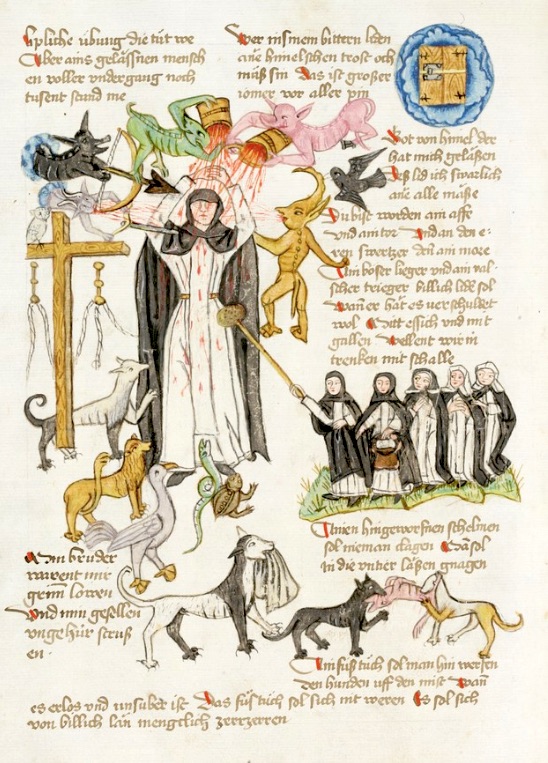 liplicher übung die tüt we
Aber ains gelässnen mensch
en voller undergang noch
tusent stund me
Wer in sinem bittern liden
ane himelschen trost och
müß sin Das ist großer
iomer vor aller pin
Got von himel der
hat mich geläßen
Deß lid ich swarlich
ane alle maße
Du bist worden ain affe
und ain tor Und an den e-
ren swertzer den ain more
Ain böser lieger und ain val-
scher trieger billich liden sol
Wan er hat es verschuldet
wol Mitt essich und mit
gallen Wellent wir in
trenken mit schalle
Ainen hingeworfnen schelmen
sol nieman clagen Man sol
in die unher läßen gnagen
Min brüder
warent mir
grim löwen
Und min gesellen
ungehür struß
en
Ain füß tüch sol man hin werfen
den hunden uff den mist Wan
es erlos und unsuber ist Das füs tüch sol sich nit weren Es sol sich
von billich län mengclich zerrzerren